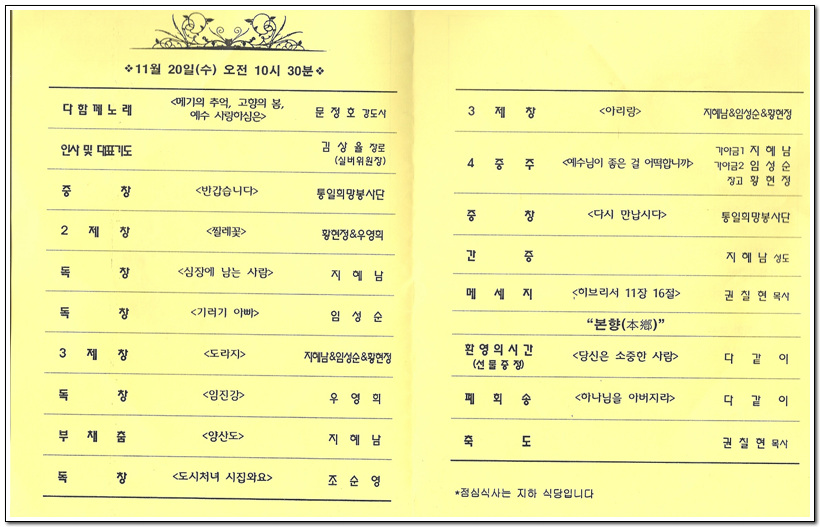 ❖11월 20일(수) 오전 10시 30분❖
다함께노래 <메기의 추억, 고향의 봄, 예수 사랑하심은> 문정호 강도사
인사 및 대표기도 김상율 장로 (실버위원장)
중창 <반갑습니다> 통일희망봉사단
2제창 <찔레꽃> 황현정&우영희
독창 <심장에 남는 사람> 지혜남
독창 <기러기 아빠> 임성순
3제창 <도라지> 지혜남&임성순&황현정
독창 <임진강> 우영희
부채춤 <양산도> 지혜남
독창 <도시처녀 시집와요> 조순영
3제창 <아리랑> 지혜남&임성순&황현정
4중주 <예수님이 좋은 걸 어떡합니까> 가야금1 지혜남
가야금2 임성순
장고 황현정
중창 <다시 만납시다> 통일희망봉사단
간증 지혜남 성도
메세지 <히브리서 11장 16절> 권칠현 목사
“본향(本鄕)”
환영의시간 (선물증정) <당신은 소중한 사람> 다같이
폐회송 <하나님을 아버지라> 다같이
축도 권칠현 목사
*점심식사는 지하 식당입니다